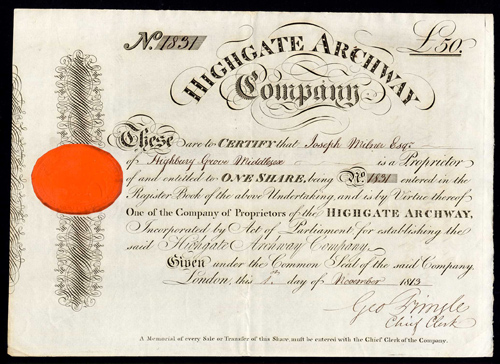 No. 1831
£50
HIGHGATE ARCHWAY
Company
These are to CERTIFY that Joseph Milner Esqr.
of Highbury Grove Middlesex is a Proprietor
of and entitled to ONE SHARE, being No. 1831 entered in the
Register Book of the above Undertaking, and is by Virtue thereof
One of the Company of Proprietors of the HIGHGATE ARCHWAY,
Incorporated by Act of Parliament for establishing the
said Highgate Archway Company.
Given under the Common Seal of the said Company.
London, this 1st. day of November 1813
Geo Pringle
Chief Clerk
A Memorial of every Sale or Transfer of this Share must be entered with the Chief Clerk of the Company.